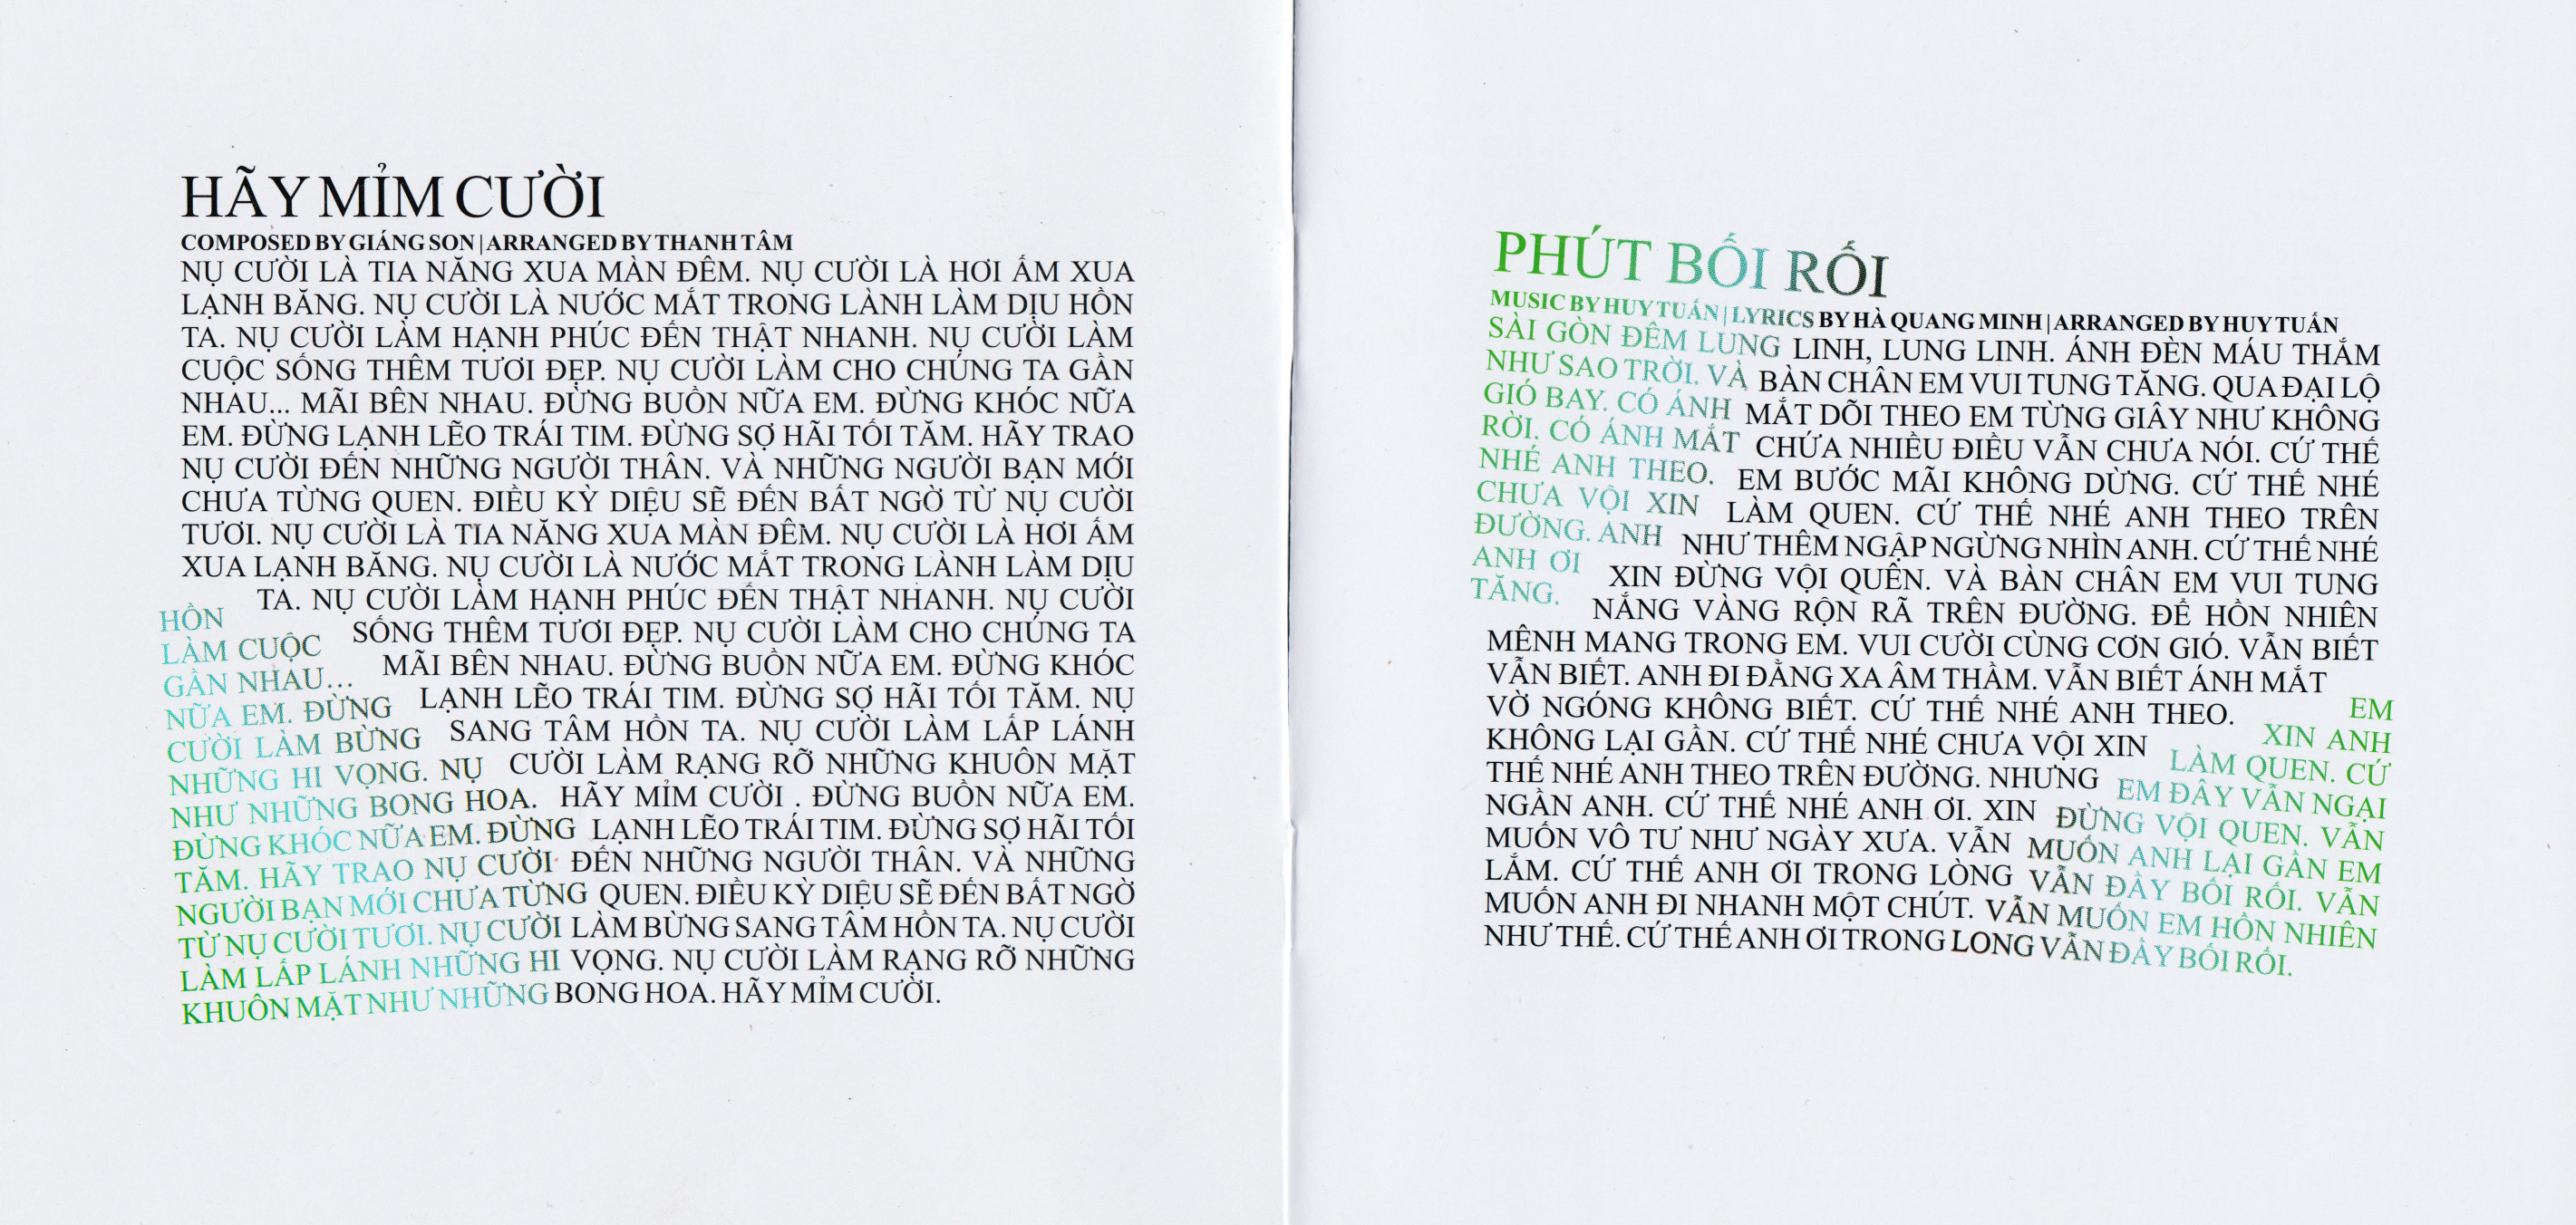 HÃY MỈM CƯỜI
COMPOSED BY GIÁNG SON | ARRANGED BY THANH TÂM
NỤ CƯỜI LÀ TIA NĂNG XUA MÀN ĐÊM. NỤ CƯỜI LÀ HƠI ẤM XUA
LẠNH BĂNG. NỤ CƯỜI LÀ NƯỚC MẮT TRONG LÀNH LÀM DỊU HỒN
TA. NỤ CƯỜI LÀM HẠNH PHÚC ĐẾN THẬT NHANH. NỤ CƯỜI LÀM
CUỘC SỐNG THÊM TƯƠI ĐẸP. NỤ CƯỜI LÀM CHO CHÚNG TA GẦN
NHAU... MÃI BÊN NHAU. ĐỪNG BUỒN NỮA EM. ĐỪNG KHÓC NỮA
EM. ĐỪNG LẠNH LẼO TRÁI TIM. ĐỪNG SỢ HÃI TỐI TĂM. HÃY TRAO
NỤ CƯỜI ĐẾN NHỮNG NGƯỜI THÂN. VÀ NHỮNG NGƯỜI BẠN MỚI
CHƯA TỪNG QUEN. ĐIỀU KỲ DIỆU SẼ ĐẾN BẤT NGỜ TỪ NỤ CƯỜI
TƯƠI. NỤ CƯỜI LÀ TIA NĂNG XUA MÀN ĐÊM. NỤ CƯỜI LÀ HƠI ẤM
XUA LẠNH BĂNG. NỤ CƯỜI LÀ NƯỚC MẮT TRONG LÀNH LÀM DỊU
HỒN TA. NỤ CƯỜI LÀM HẠNH PHÚC ĐẾN THẬT NHANH. NỤ CƯỜI
LÀM CUỘC SỐNG THÊM TƯƠI ĐẸP. NỤ CƯỜI LÀM CHO CHÚNG TA
GẦN NHAU... MÃI BÊN NHAU. ĐỪNG BUỒN NỮA EM. ĐỪNG KHÓC
NỮA EM. ĐỪNG LẠNH LẼO TRÁI TIM. ĐỪNG SỢ HÃI TỐI TĂM. NỤ
CƯỜI LÀM BỪNG SANG TÂM HỒN TA. NỤ CƯỜI LÀM LẤP LÁNH
NHỮNG HI VỌNG. NỤ CƯỜI LÀM RẠNG RỠ NHỮNG KHUÔN MẶT
NHƯ NHỮNG BONG HOA. HÃY MỈM CƯỜI . ĐỪNG BUỒN NỮA EM.
ĐỪNG KHÓC NỮA EM. ĐỪNG LẠNH LẼO TRÁI TIM. ĐỪNG SỢ HÃI TỐI
TĂM. HÃY TRAO NỤ CƯỜI ĐẾN NHỮNG NGƯỜI THÂN. VÀ NHỮNG
NGƯỜI BẠN MỚI CHƯA TỪNG QUEN. ĐIỀU KỲ DIỆU SẼ ĐẾN BẤT NGỜ
TỪ NỤ CƯỜI TƯƠI. NỤ CƯỜI LÀM BỪNG SANG TÂM HỒN TA. NỤ CƯỜI
LÀM LẤP LÁNH NHỮNG HI VỌNG. NỤ CƯỜI LÀM RẠNG RỠ NHỮNG
KHUÔN MẶT NHƯ NHỮNG BONG HOA. HÃY MỈM CƯỜI.
PHÚT BỐI RỐI
MUSIC BY HUY TUẤN | LYRICS BY HÀ QUANG MINH | ARRANGED BY HUY TUẤN
SÀI GÒN ĐÊM LUNG LINH, LUNG LINH. ÁNH ĐÈN MÁU THẮM
NHƯ SAO TRỜI. VÀ BÀN CHÂN EM VUI TUNG TĂNG. QUA ĐẠI LỘ
GIÓ BAY. CÓ ÁNH MẮT DÕI THEO EM TỪNG GIÂY NHƯ KHÔNG
RỜI. CÓ ÁNH MẮT CHỨA NHIỀU ĐIỀU VẪN CHƯA NÓI. CỨ THẾ
NHÉ ANH THEO. EM BƯỚC MÃI KHÔNG DỪNG. CỨ THẾ NHÉ
CHƯA VỘI XIN LÀM QUEN. CỨ THẾ NHÉ ANH THEO TRÊN
ĐƯỜNG. ANH NHƯ THÊM NGẬP NGỪNG NHÌN ANH. CỨ THẾ NHÉ
ANH ƠI XIN ĐỪNG VỘI QUÊN. VÀ BÀN CHÂN EM VUI TUNG
TĂNG. NẮNG VÀNG RỘN RÃ TRÊN ĐƯỜNG. ĐỂ HỒN NHIÊN
MÊNH MANG TRONG EM. VUI CƯỜI CÙNG CƠN GIÓ. VẪN BIẾT
VẪN BIẾT. ANH ĐI ĐẰNG XA ÂM THẦM. VẪN BIẾT ÁNH MẮT EM
VỜ NGÓNG KHÔNG BIẾT. CỨ THẾ NHÉ ANH THEO. XIN ANH
KHÔNG LẠI GẦN. CỨ THẾ NHÉ CHƯA VỘI XIN LÀM QUEN. CỨ
THẾ NHÉ ANH THEO TRÊN ĐƯỜNG. NHƯNG EM ĐÂY VẪN NGẠI
NGẦN ANH. CỨ THẾ NHÉ ANH ƠI. XIN ĐỪNG VỘI QUEN. VẪN
MUỐN VÔ TƯ NHƯ NGÀY XƯA. VẪN MUỐN ANH LẠI GẦN EM
LẮM. CỨ THẾ ANH ƠI TRONG LÒNG VẪN ĐẦY BỐI RỐI. VẪN
MUỐN ANH ĐI NHANH MỘT CHÚT. VẪN MUỐN EM HỒN NHIÊN
NHƯ THẾ. CỨ THẾ ANH ƠI TRONG LONG VẪN ĐẦY BỐI RỐI.